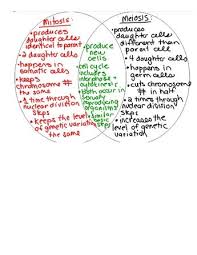 Mitosis:
• produces
daughter cells
identical to parent
• 2 daughter cells
• happens in
somatic cells
• keeps
chromosome #
the same
• 1 time through
nuclear division
steps
• Keeps the level
of genetic variation
the same
• produce
new
cells
• cell cycle
includes
interphase +
cytokinesis
• Both occur in
sexually
reproducing
organisms
• similar
basic
steps
Meiosis:
• produces
daughter cells
different than
parent cell
• 4 daughter cells
• happens in
germ cells
• cuts chromosome
# in half
• 2 times through
nuclear division
steps
• increases the
level of genetic
variation